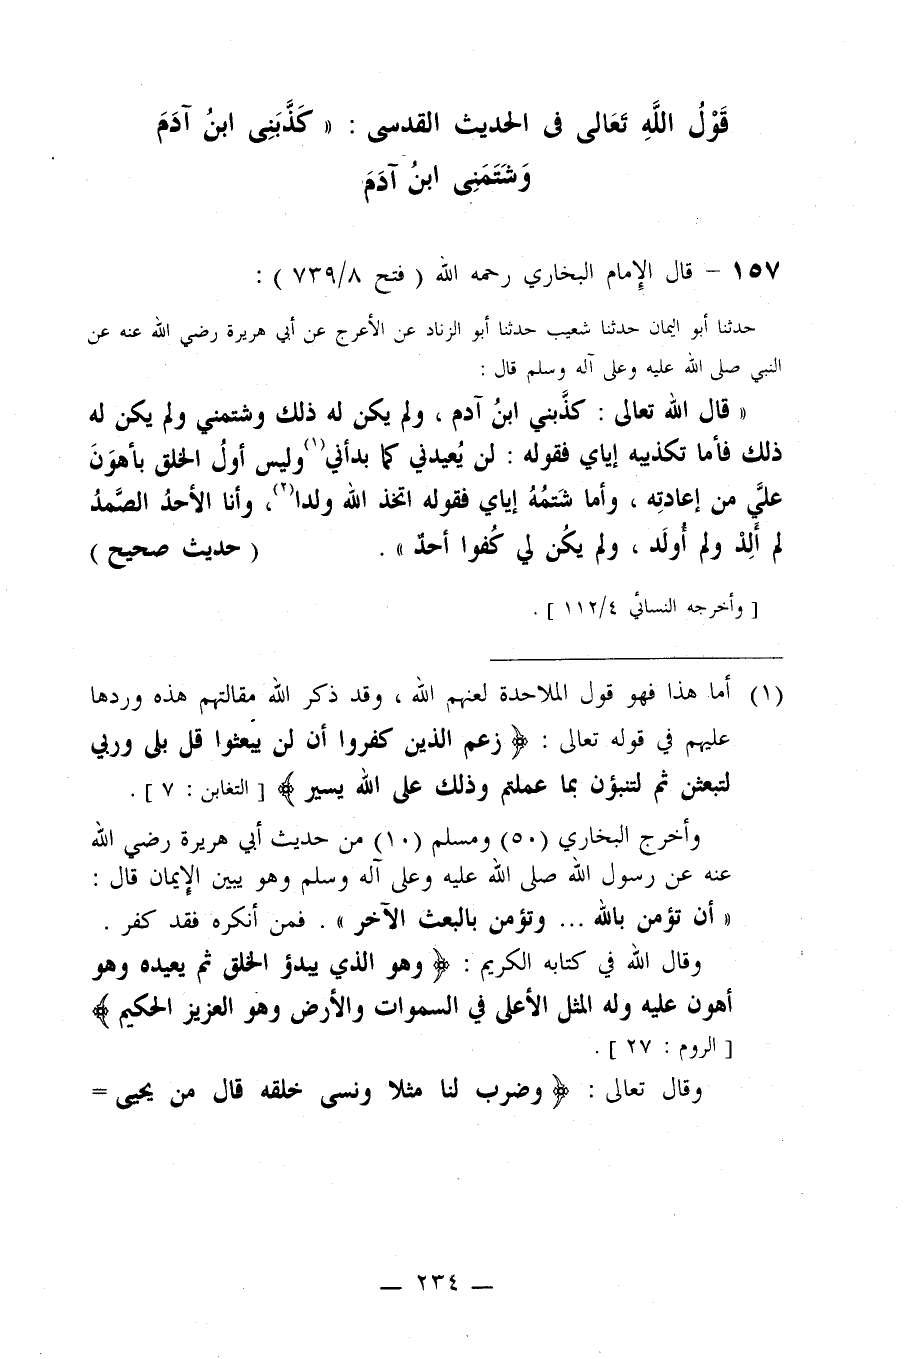 قَوْلُ اللَّهِ تَعَالى فى الحديث القدسى : « كَذَّبَنِى ابنُ آدَمَ
وَشَتَمَنِى ابنُ آدَمَ
١٥٧ – قال الإمام البخاري رحمه الله ( فتح ٧٣٩/٨ ) :
حدثنا أبو اليمان حدثنا شعيب حدثنا أبو الزناد عن الأعرج عن أبي هريرة رضي الله عنه عن
النبي صلى الله عليه وعلى آله وسلم قال :
« قال الله تعالى : كذَّبني ابنُ آدم ، ولم يكن له ذلك وشتمني ولم يكن له
ذلك فأما تكذيبه إياي فقوله : لن يُعيدني كما بدأني(١) وليس أولُ الخلق بأهونَ
عليَّ من إعادتِه ، وأما شَتمُهُ إياي فقوله اتخذ الله ولدا(٢)، وأنا الأحدُ الصَّمدُ
لم أَلِدْ ولم أُولَد ، ولم يكُن لي كُفوا أحدٌ » . ( حديث صحيح )
[ وأخرجه النسائي ١١٢/٤ ] .
(١) أما هذا فهو قول الملاحدة لعنهم الله ، وقد ذكر الله مقالتهم هذه وردها
عليهم في قوله تعالى : ﴿ زعم الذين كفروا أن لن يبعثوا قل بلى وربي
لتبعثن ثم لتنبؤن بما عملتم وذلك على الله يسير ﴾ [ التغابن : ٧ ] .
وأخرج البخاري (٥٠) ومسلم (١٠) من حديث أبي هريرة رضي الله
عنه عن رسول الله صلى الله عليه وعلى آله وسلم وهو يبين الإيمان قال :
« أن تؤمن بالله ... وتؤمن بالبعث الآخر » . فمن أنكره فقد كفر .
وقال الله في كتابه الكريم : ﴿ وهو الذي يبدؤ الخلق ثم يعيده وهو
أهون عليه وله المثل الأعلى في السموات والأرض وهو العزيز الحكيم ﴾
[ الروم : ٢٧ ] .
وقال تعالى : ﴿ وضرب لنا مثلا ونسى خلقه قال من يحيى =
— ٢٣٤ —